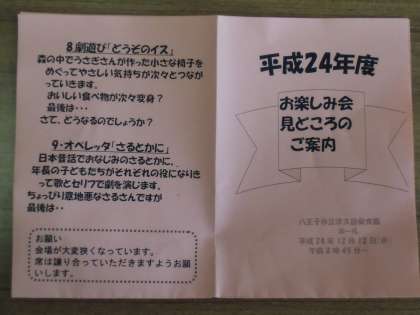 8劇遊び「どうぞのイス」
森の中でうさぎさんが作った小さな椅子を
めぐってやさしい気持ちが次々とつなが
っていきます。
おいしい食べ物が次々変身?
最後は・・・
さて、どうなるのでしょうか?
9・オペレッタ「さるとかに」
日本昔話でおなじみのさるとかに、
年長の子どもたちがそれぞれの役になりき
って歌とセリフで劇を演じます。
ちょっぴり意地悪なさるさんですが
最後は・・
お願い
会場が大変狭くなっています。
席は譲り合っていただきますようお願
いします。
平成24年度
お楽しみ会
見どころの
ご案内
八王子市立
ホール
平成24年12月12日